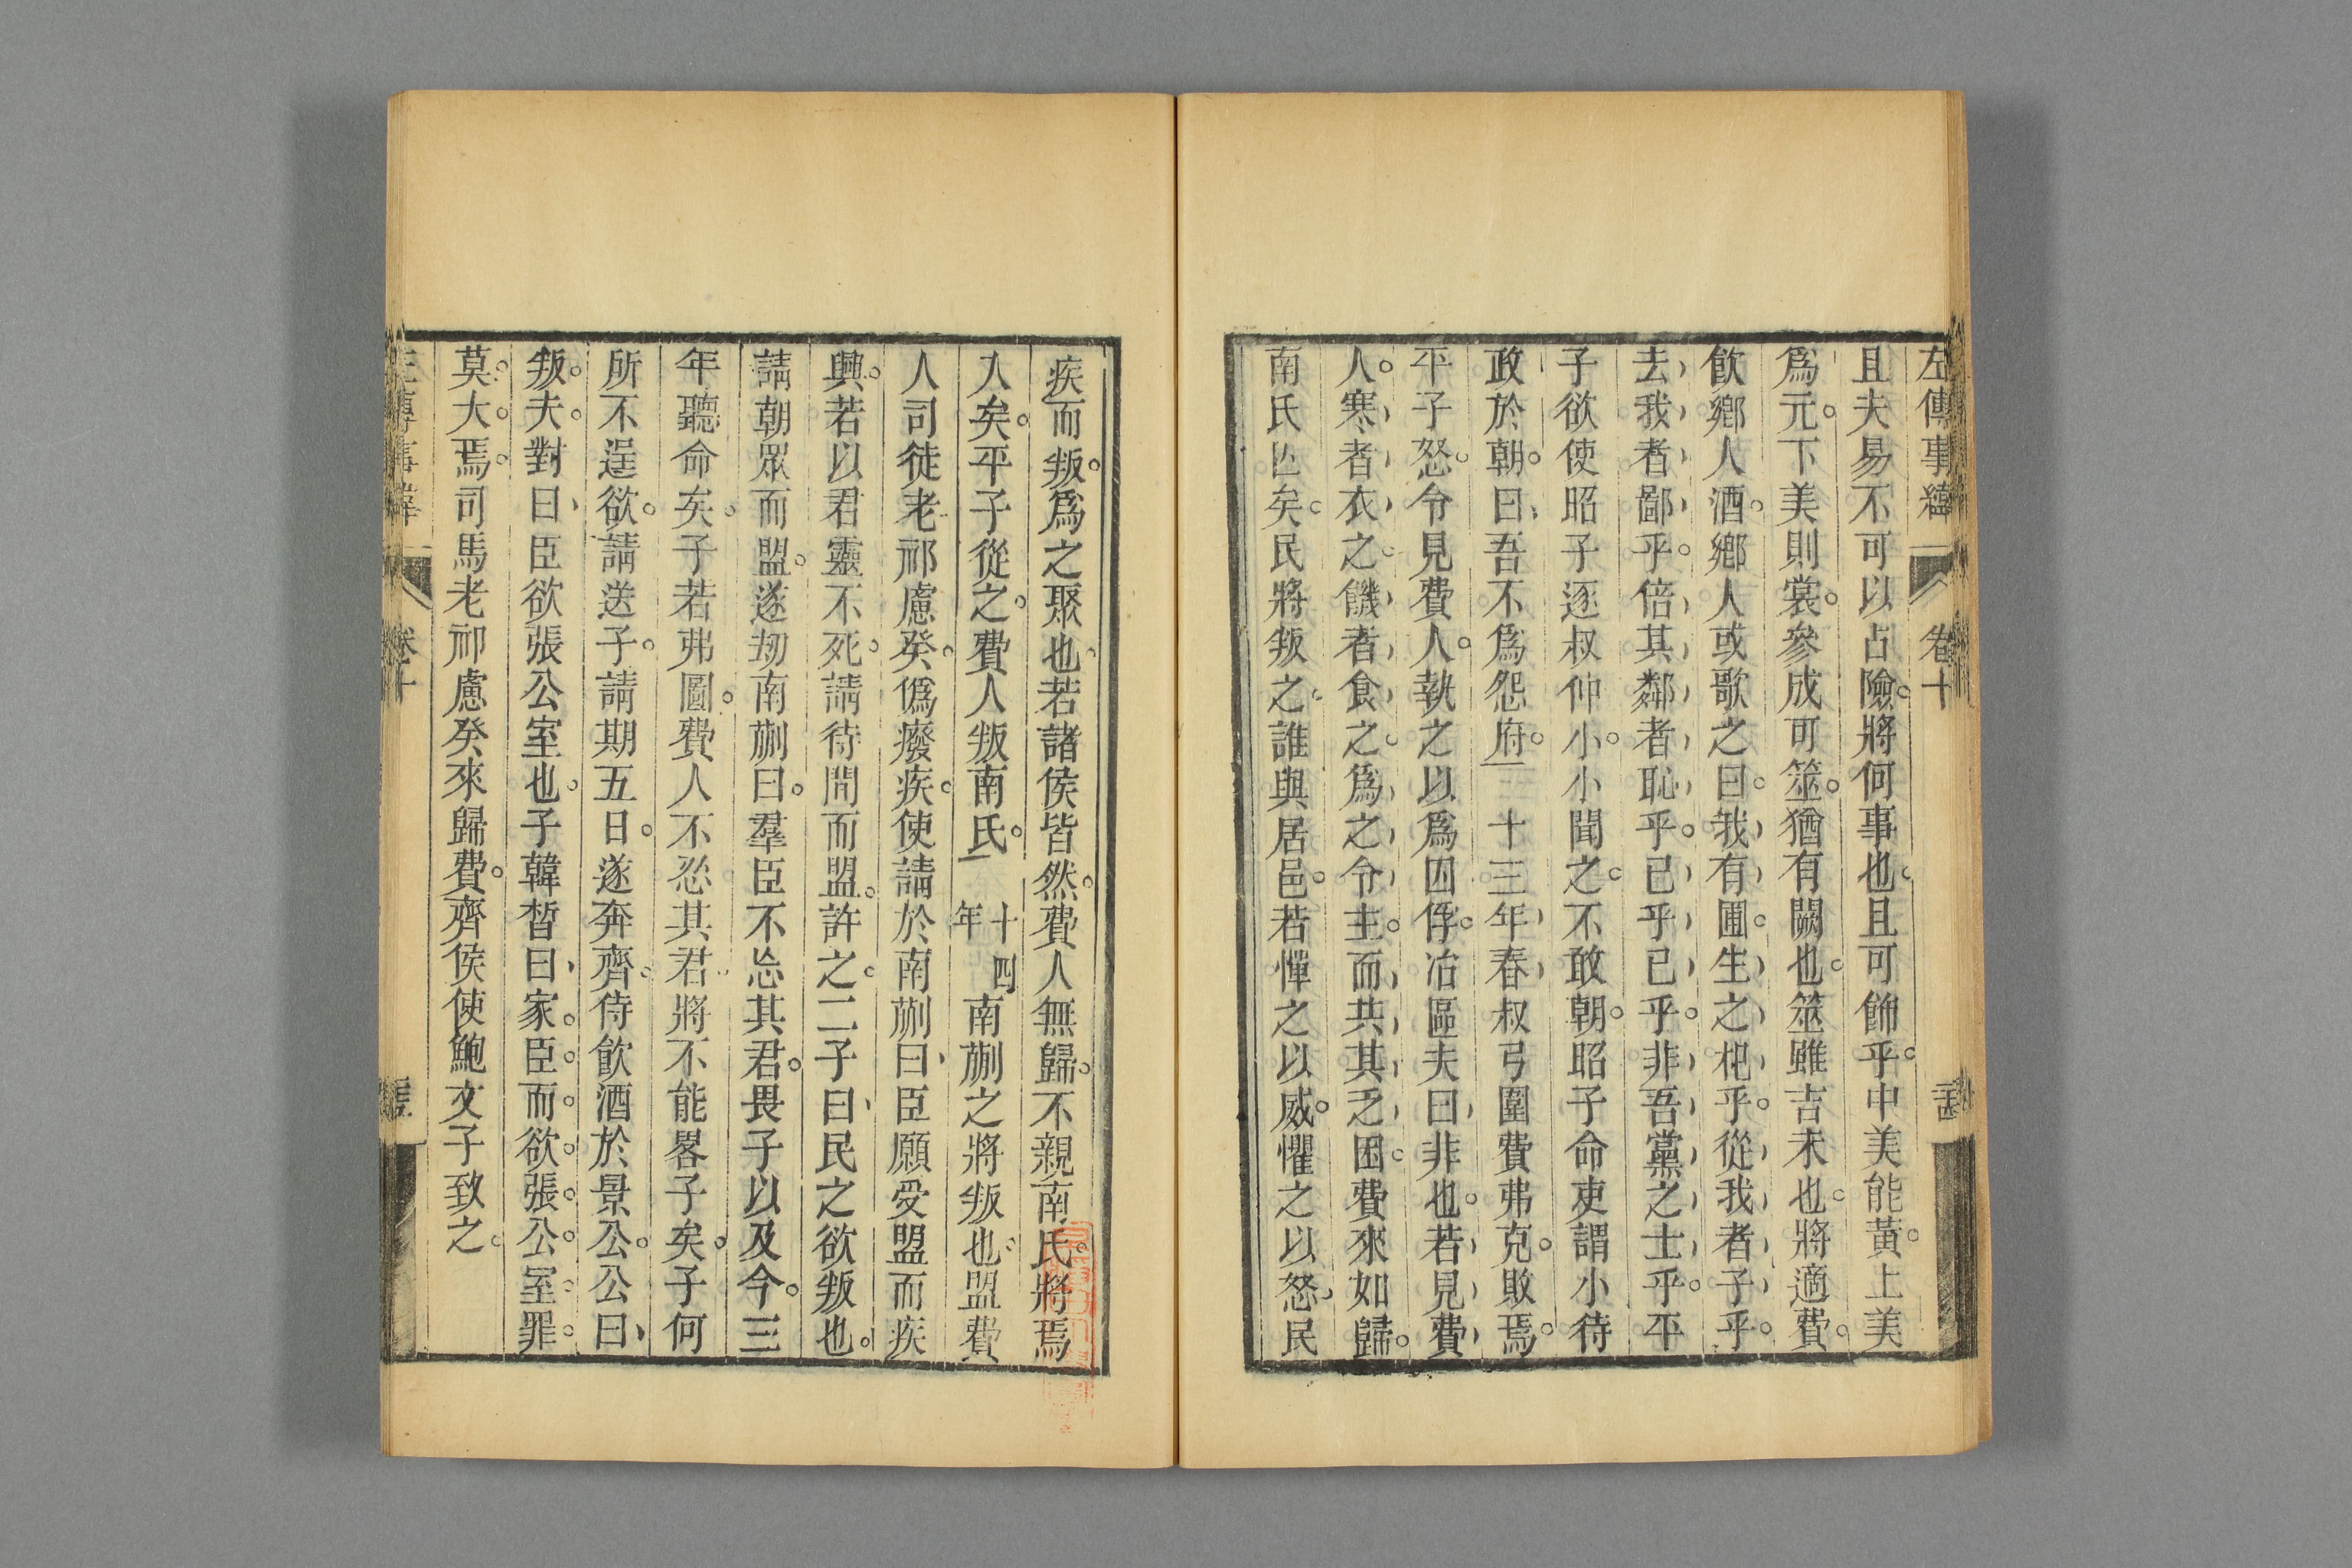 左傳事緯 卷十
且夫易不可以占險將何事也且可飾乎中美能黃上美
爲元下美則裳參成可筮猶有闕也筮雖吉未也將適費
飲鄉人酒鄉人或歌之曰我有圃生之杞乎從我者子乎
去我者鄙乎倍其鄰者恥乎已乎已乎非吾黨之士乎平
子欲使昭子逐叔仲小小聞之不敢朝昭子命吏謂小待
政於朝曰吾不爲怨府 十三年春叔弓圍費弗克敗焉
平子怒令見費人執之以爲囚俘冶區夫曰非也若見費
人寒者衣之饑者食之爲之令主而共其乏困費來如歸
南氏亾矣民將叛之誰與居邑若憚之以威懼之以怒民
疾而叛爲之聚也若諸侯皆然費人無歸不親南氏將焉
入矣平子從之費人叛南氏 十四年 南蒯之將叛也盟費
人司徒老祁慮癸僞癈疾使請於南蒯曰臣願受盟而疾
興若以君靈不死請待間而盟許之二子曰民之欲叛也
請朝眾而盟遂劫南蒯曰羣臣不忘其君畏子以及今三
年聽命矣子若弗圖費人不忍其君將不能畧子矣子何
所不逞欲請送子請期五日遂奔齊侍飲酒於景公公曰
叛夫對曰臣欲張公室也子韓晳曰家臣而欲張公室罪
莫大焉司馬老祁慮癸來歸費齊侯使鮑文子致之
左傳事緯 卷十